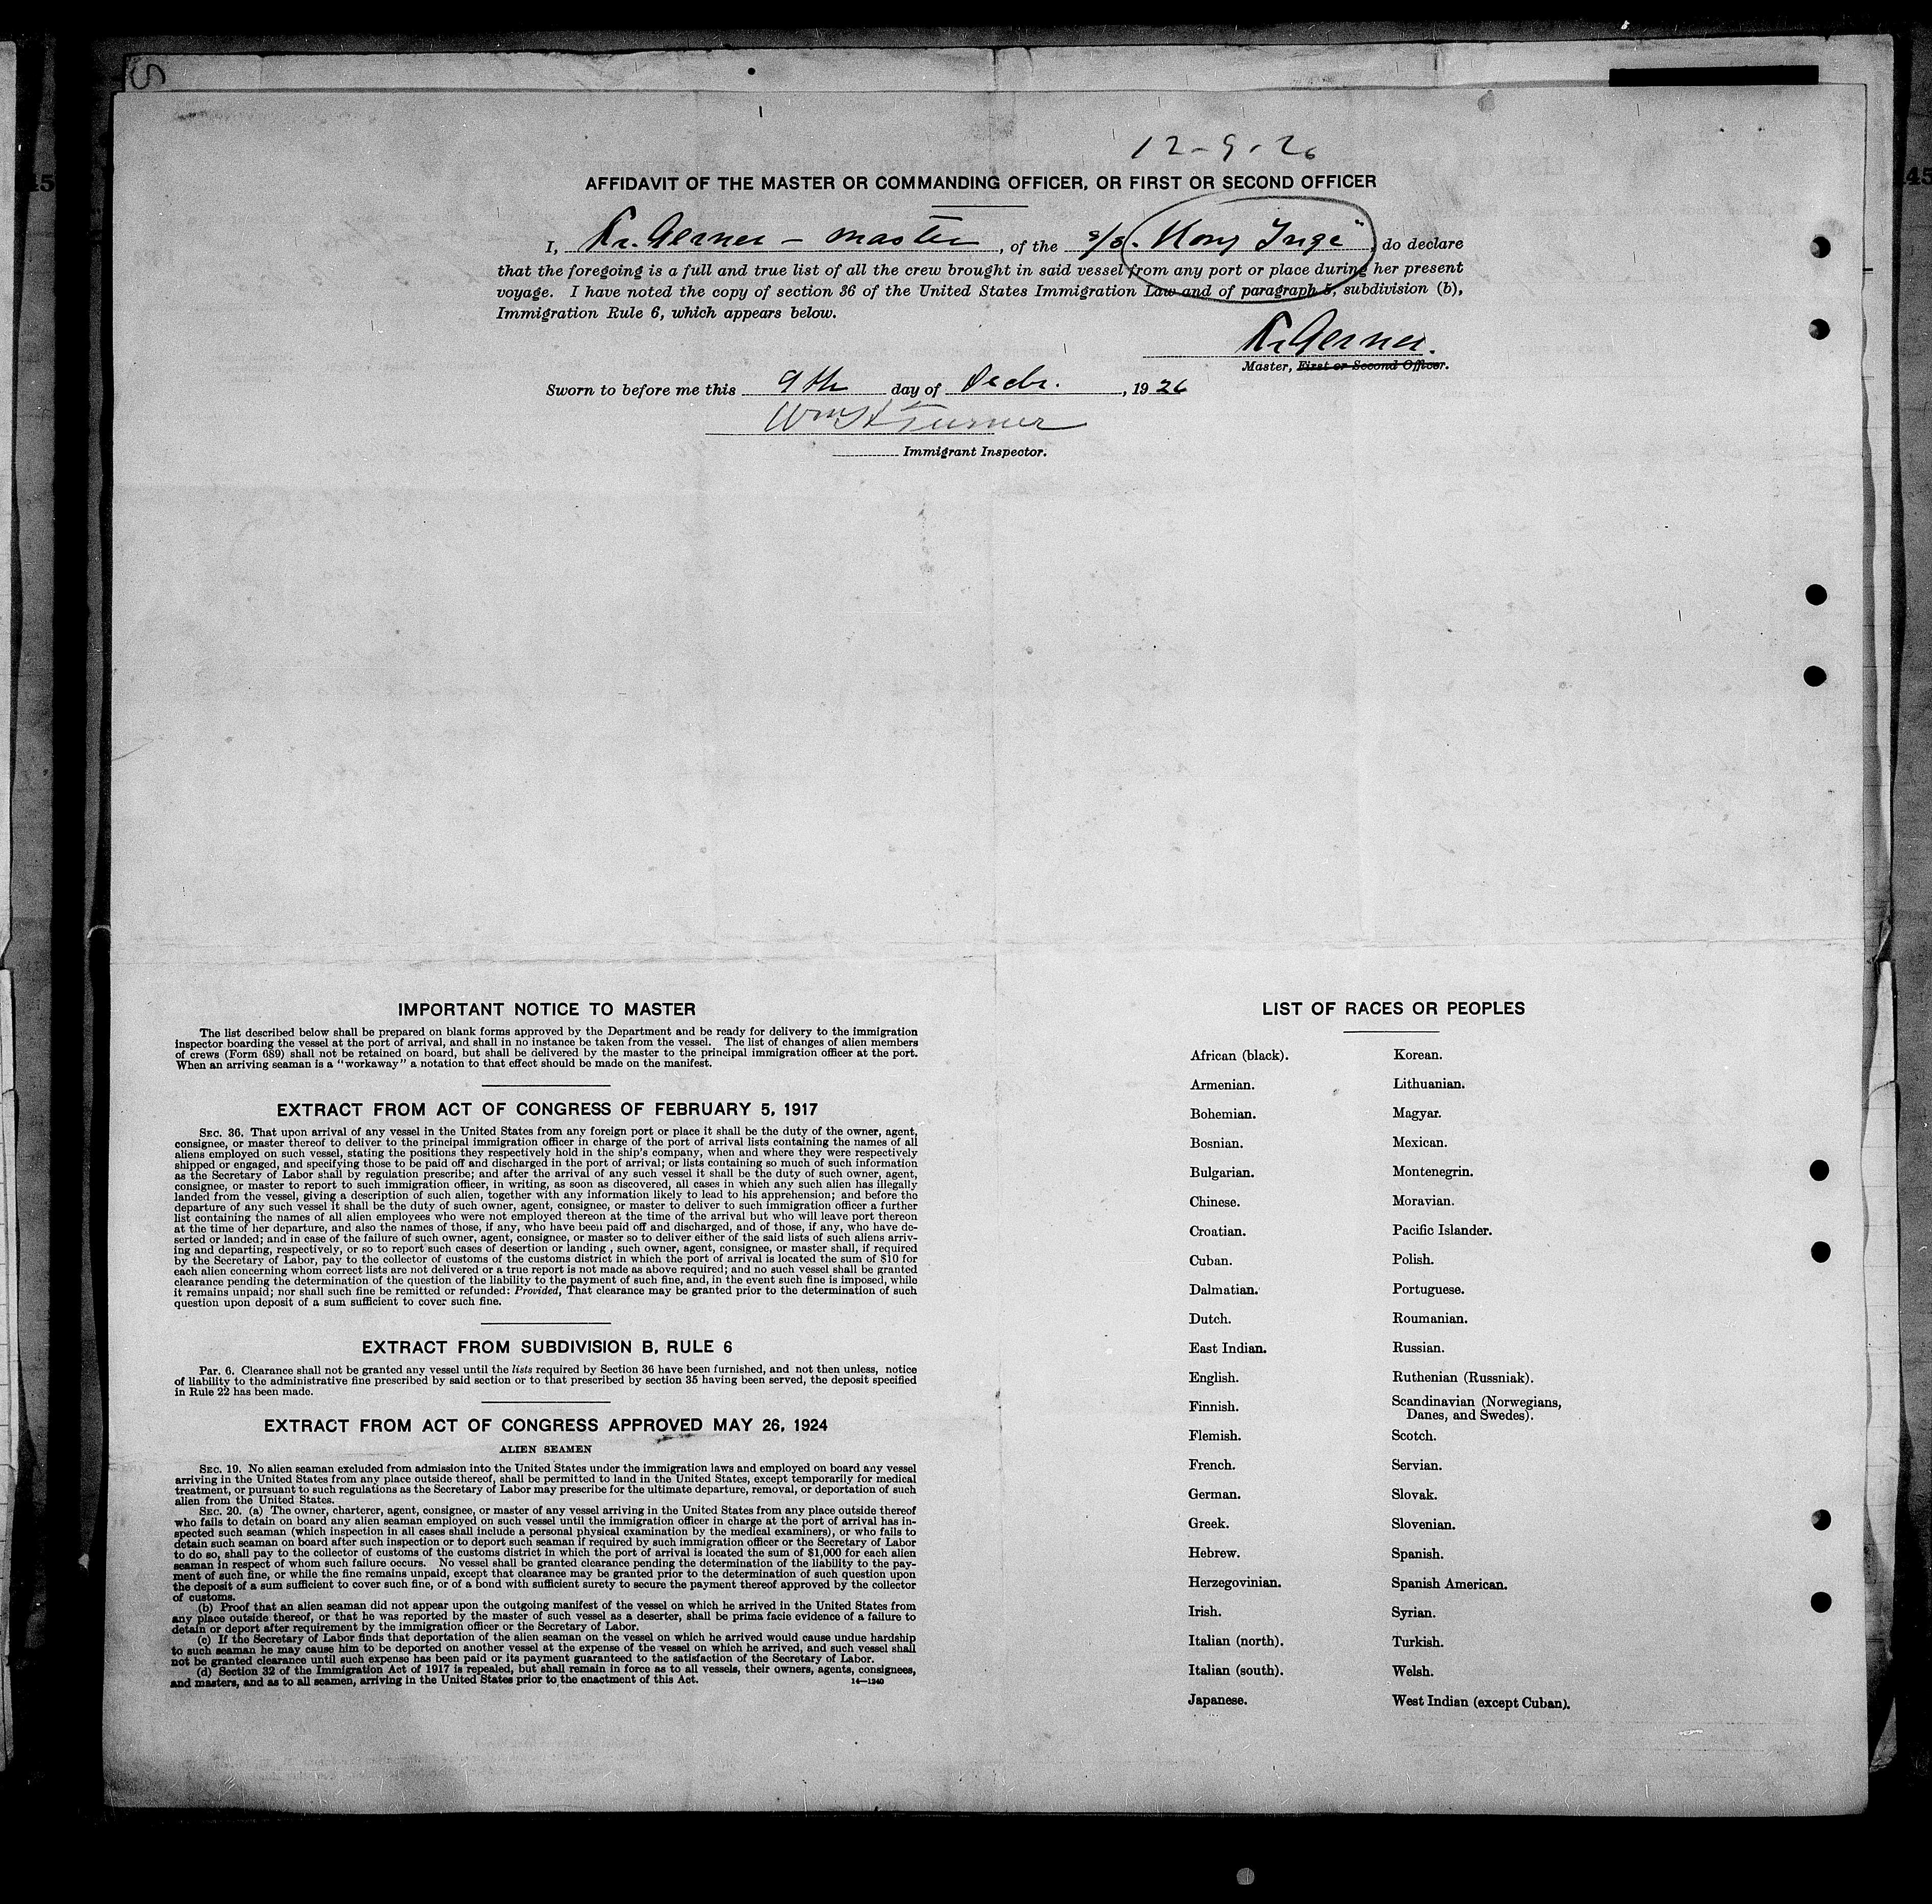 12-9-26
AFFIDAVIT OF THE MASTER OR COMMANDING OFFICER, OR FIRST OR SECOND OFFICER
I, Kr. Gerner - master, of the s/s. "Kong Inge", do declare
that the foregoing is a full and true list of all the crew brought in said vessel from any port or place during her present
voyage. I have noted the copy of section 36 of the United States Immigration Law and of paragraph 5, subdivision (b),
Immigration Rule 6, which appears below.
Kr Gerner.
Master, First or Second Officer.
Sworn to before me this 9th day of Decbr., 1926
Wm H Turner
Immigrant Inspector.
IMPORTANT NOTICE TO MASTER
The list described below shall be prepared on blank forms approved by the Department and be ready for delivery to the immigration
inspector boarding the vessel at the port of arrival, and shall in no instance be taken from the vessel. The list of changes of alien members
of crews (Form 689) shall not be retained on board, but shall be delivered by the master to the principal immigration officer at the port.
When an arriving seaman is a "workaway" a notation to that effect should be made on the manifest.
EXTRACT FROM ACT OF CONGRESS OF FEBRUARY 5, 1917
SEC. 36. That upon arrival of any vessel in the United States from any foreign port or place it shall be the duty of the owner, agent,
consignee, or master thereof to deliver to the principal immigration officer in charge of the port of arrival lists containing the names of all
aliens employed on such vessel, stating the positions they respectively hold in the ship's company, when and where they were respectively
shipped or engaged, and specifying those to be paid off and discharged in the port of arrival; or lists containing so much of such information
as the Secretary of Labor shall by regulation prescribe; and after the arrival of any such vessel it shall be the duty of such owner, agent,
consignee, or master to report to such immigration officer, in writing, as soon as discovered, all cases in which any such alien has illegally
landed from the vessel, giving a description of such alien, together with any information likely to lead to his apprehension; and before the
departure of any such vessel it shall be the duty of such owner, agent, consignee, or master to deliver to such immigration officer a further
list containing the names of all alien employees who were not employed thereon at the time of the arrival but who will leave port thereon
at the time of her departure, and also the names of those, if any, who have been paid off and discharged, and of those, if any, who have de-
serted or landed; and in case of the failure of such owner, agent, consignee, or master so to deliver either of the said lists of such aliens arriv-
ing and departing, respectively, or so to report such cases of desertion or landing, such owner, agent, consignee, or master shall, if required
by the Secretary of Labor, pay to the collector of customs of the customs district in which the port of arrival is located the sum of $10 for
each alien concerning whom correct lists are not delivered or a true report is not made as above required; and no such vessel shall be granted
clearance pending the determination of the question of the liability to the payment of such fine, and, in the event such fine is imposed, while
it remains unpaid; nor shall such fine be remitted or refunded: Provided, That clearance may be granted prior to the determination of such
question upon deposit of a sum sufficient to cover such fine.
EXTRACT FROM SUBDIVISION B, RULE 6
PAR. 6. Clearance shall not be granted any vessel until the lists required by Section 36 have been furnished, and not then unless, notice
of liability to the administrative fine prescribed by said section or to that prescribed by section 35 having been served, the deposit specified
in Rule 22 has been made.
EXTRACT FROM ACT OF CONGRESS APPROVED MAY 26, 1924
ALIEN SEAMEN
SEC. 19. No alien seaman excluded from admission into the United States under the immigration laws and employed on board any vessel
arriving in the United States from any place outside thereof, shall be permitted to land in the United States, except temporarily for medical
treatment, or pursuant to such regulations as the Secretary of Labor may prescribe for the ultimate departure, removal, or deportation of such
alien from the United States.
SEC. 20. (a) The owner, charterer, agent, consignee, or master of any vessel arriving in the United States from any place outside thereof
who fails to detain on board any alien seaman employed on such vessel until the immigration officer in charge at the port of arrival has in-
spected such seaman (which inspection in all cases shall include a personal physical examination by the medical examiners), or who fails to
detain such seaman on board after such inspection or to deport such seaman if required by such immigration officer or the Secretary of Labor
to do so, shall pay to the collector of customs of the customs district in which the port of arrival is located the sum of $1,000 for each alien
seaman in respect of whom such failure occurs. No vessel shall be granted clearance pending the determination of the liability to the pay-
ment of such fine, or while the fine remains unpaid, except that clearance may be granted prior to the determination of such question upon
the deposit of a sum sufficient to cover such fine, or of a bond with sufficient surety to secure the payment thereof approved by the collector
of customs.
(b) Proof that an alien seaman did not appear upon the outgoing manifest of the vessel on which he arrived in the United States from
any place outside thereof, or that he was reported by the master of such vessel as a deserter, shall be prima facie evidence of a failure to
detain or deport after requirement by the immigration officer or the Secretary of Labor.
(c) If the Secretary of Labor finds that deportation of the alien seaman on the vessel on which he arrived would cause undue hardship
to such seaman he may cause him to be deported on another vessel at the expense of the vessel on which he arrived, and such vessel shall
not be granted clearance until such expense has been paid or its payment guaranteed to the satisfaction of the Secretary of Labor.
(d) Section 32 of the Immigration Act of 1917 is repealed, but shall remain in force as to all vessels, their owners, agents, consignees,
and masters, and as to all seamen, arriving in the United States prior to the enactment of this Act.
14—1240
LIST OF RACES OR PEOPLES
African (black).
Armenian.
Bohemian.
Bosnian.
Bulgarian.
Chinese.
Croatian.
Cuban.
Dalmatian.
Dutch.
East Indian.
English.
Finnish.
Flemish.
French.
German.
Greek.
Hebrew.
Herzegovinian.
Irish.
Italian (north).
Italian (south).
Japanese.
Korean.
Lithuanian.
Magyar.
Mexican.
Montenegrin.
Moravian.
Pacific Islander.
Polish.
Portuguese.
Roumanian.
Russian.
Ruthenian (Russniak).
Scandinavian (Norwegians,
Danes, and Swedes).
Scotch.
Servian.
Slovak.
Slovenian.
Spanish.
Spanish American.
Syrian.
Turkish.
Welsh.
West Indian (except Cuban).